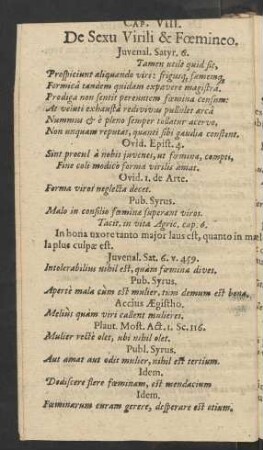 CAP. VIII.
De Sexu Virili & Fœmineo.
Juvenal. Satyr. 6.
Tamen utile quid sit,
Prospiciunt aliquando viri: frigusq́, famemq́
Formicâ tandem quidam expavere magistrâ.
Prodiga non sentit pereuntem fœmina censum:
At velut exhaustâ redivivus pullulet arcâ
Nummus & è pleno semper tollatur acervo,
Non unquam reputat, quanti sibi gaudia constent.
Ovid. Epist. 4.
Sint procul à nobis juvenes, ut fœmina, compti,
Fine coli modico forma virilis amat.
Ovid. 1. de Arte.
Forma viros neglecta decet.
Pub. Syrus.
Malo in consilio fœminæ superant viros.
Tacit. in vita Agric. cap. 6.
In bona uxore tanto major laus est, quanto in mala
la plus culpæ est.
Juvenal. Sat. 6. v. 459.
Intolerabilius nihil est, quàm fœmina dives.
Pub. Syrus.
Apertè mala cùm est mulier, tum demum est bona.
Accius Ægistho.
Meliùs quàm viri callent mulieres.
Plaut. Most. Act. 1. Sc. 116.
Mulier rectè olet, ubi nihil olet.
Publ. Syrus.
Aut amat aut odit mulier, nihil est tertium.
Idem.
Dediscere flere fœminam, est mendacium
Idem.
Fœminarum curam gerere, desperare est otium.